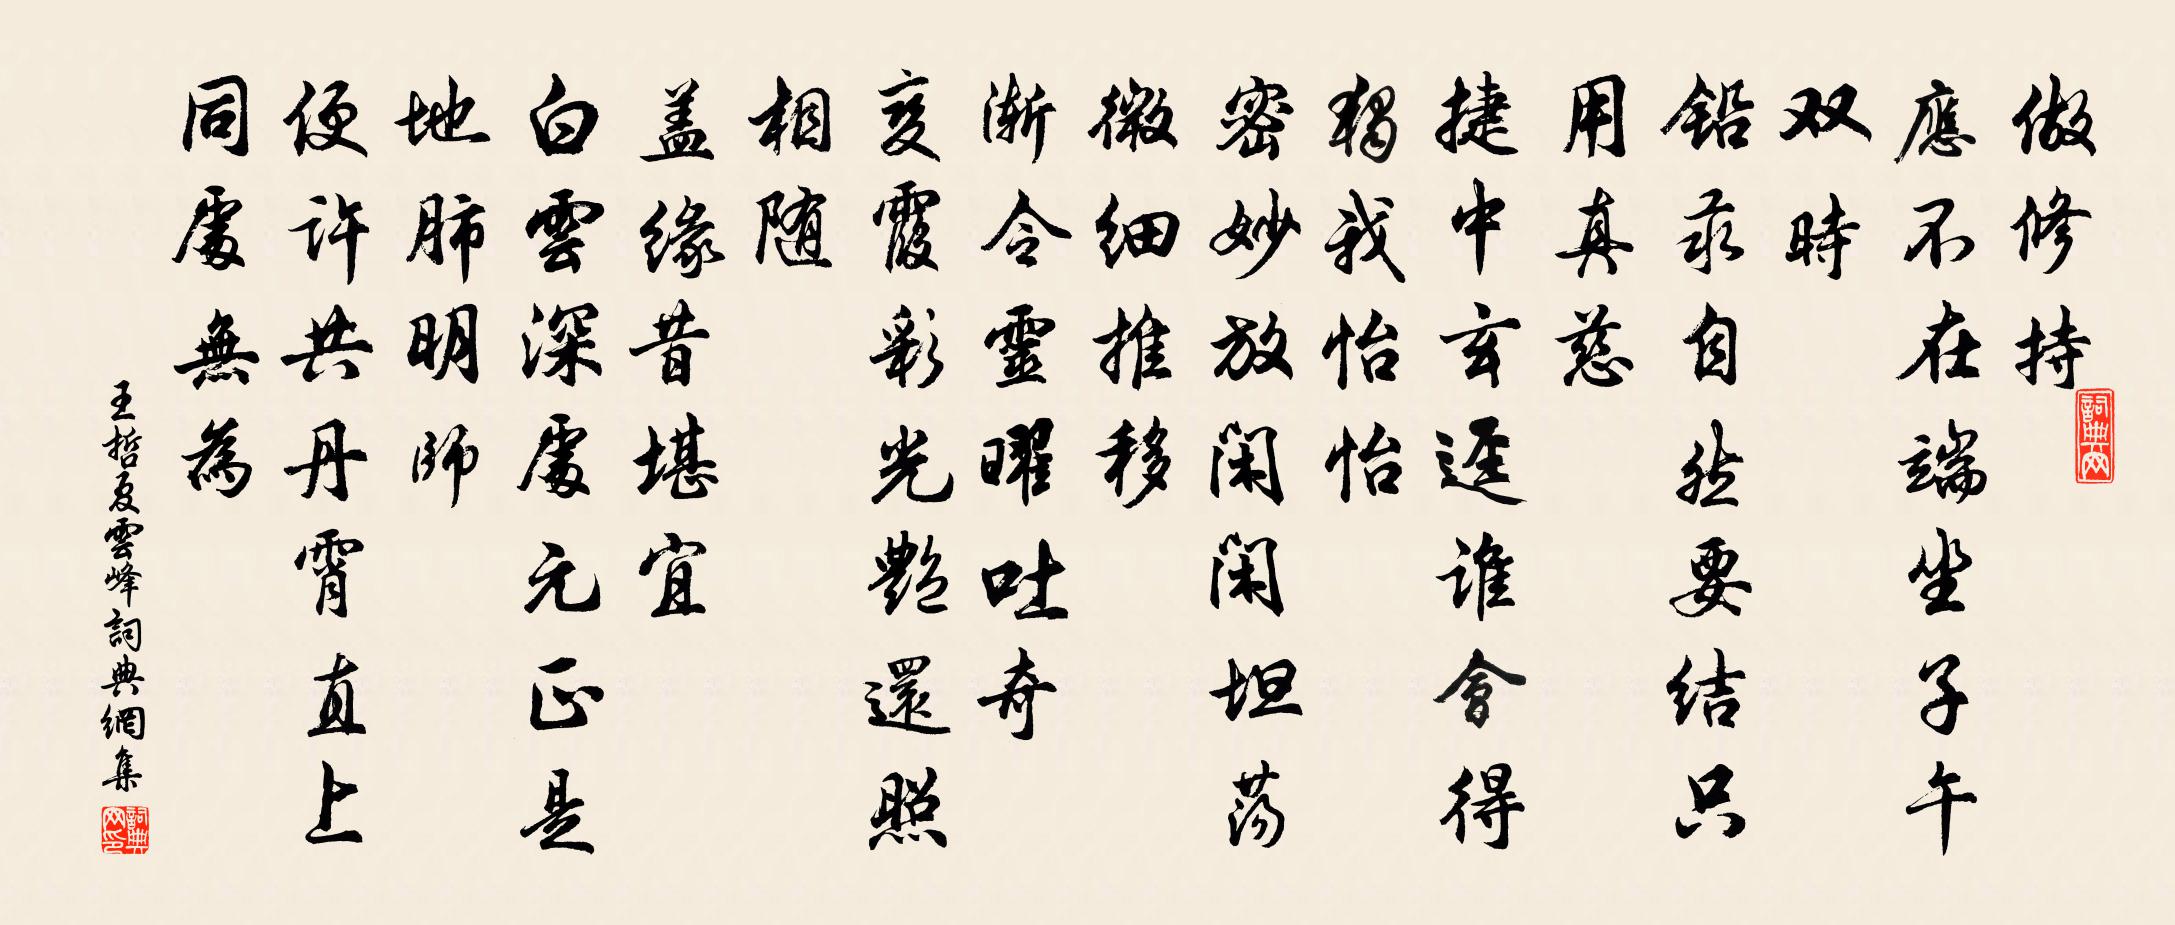 做修持
應不在端坐子午
双時
铅汞自然要结只
用真慈
捷中玄遥谁會得
獨我怡怡
密妙放闲闲坦荡
微细推移
渐令靈曜吐奇
变霞彩光艷還照
相随
盖缘昔堪宜
白雲深處元正是
地肺明師
便许共丹霄直上
同處無為
王哲夏雲峰詞典網集
詞典网
詞典网印